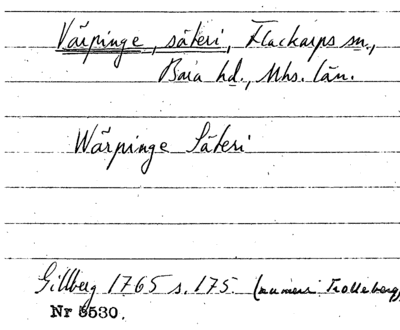 Värpinge, säteri, Flackarps sn.,
Bara hd., Mhs. län.
Wärpinge Säteri
Gillberg 1765 s. 175. (numera Trolleberg)
Nr 5530.